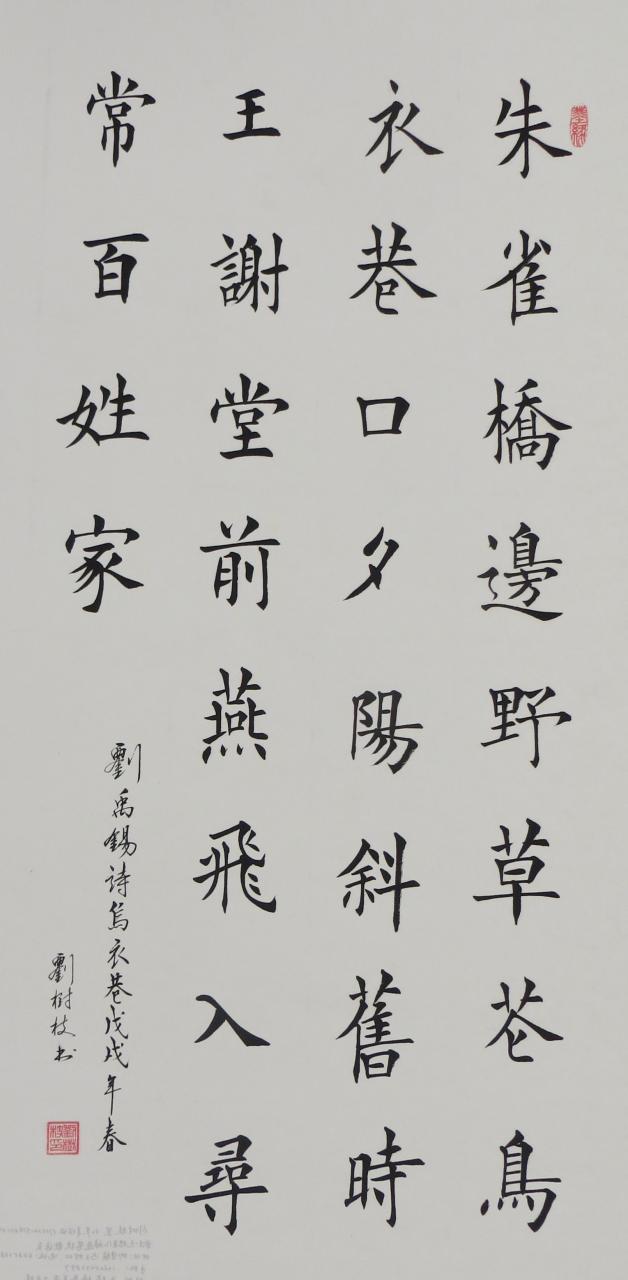 朱雀橋邊野草花鳥
衣巷口夕陽斜舊時
王謝堂前燕飛入尋
常百姓家
劉禹錫詩烏衣巷戊戌年春
劉樹枝书